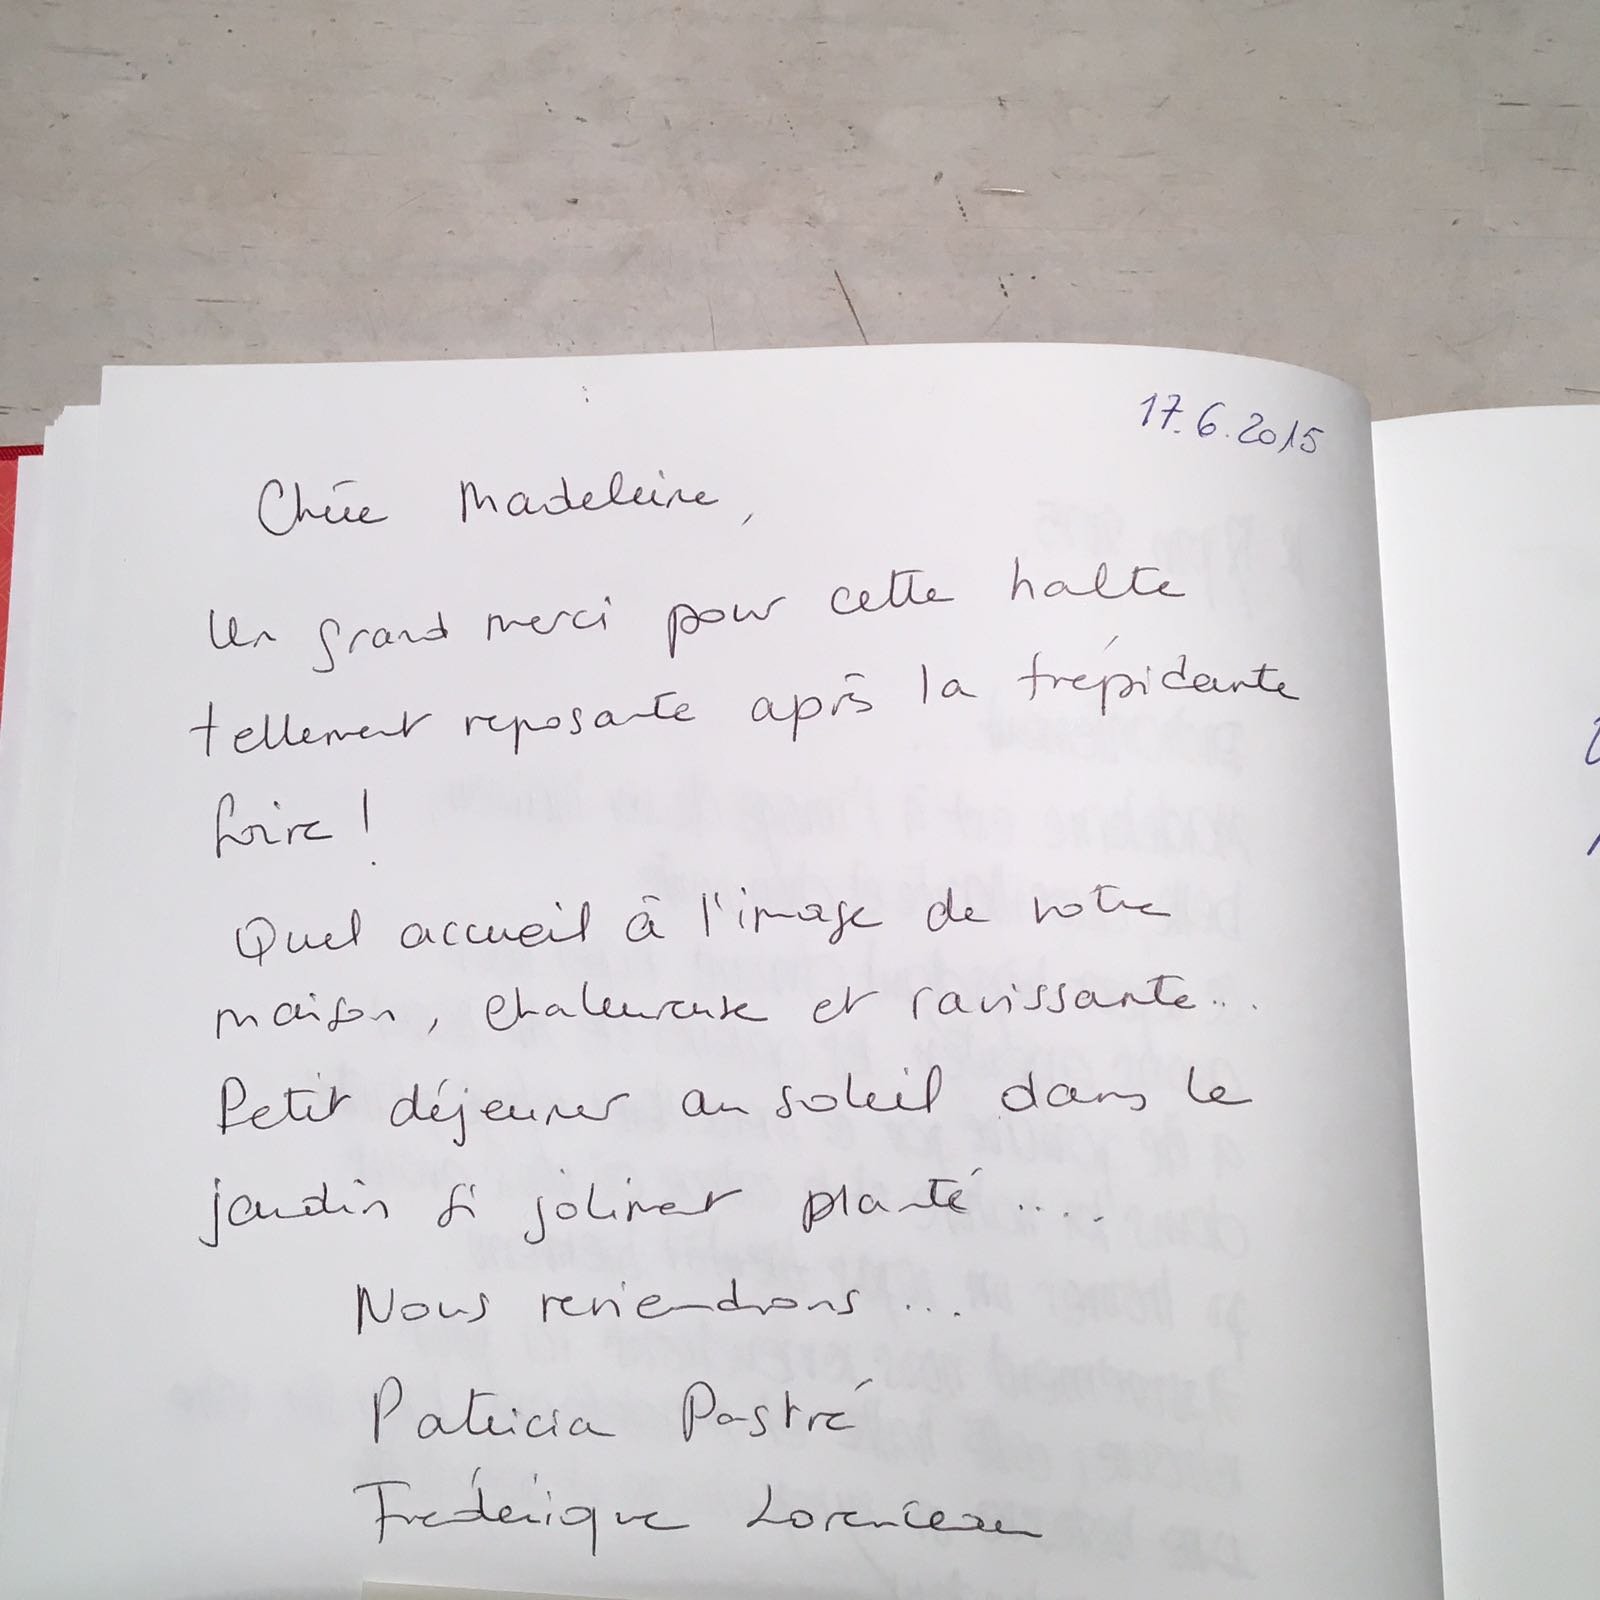 17.6.2015
Chère Madeleine,
Un grand merci pour cette halte
tellement reposante après la trépidante
foire !
Quel accueil à l'image de votre
maison, chaleureuse et ravissante...
Petit déjeuner au soleil dans le
jardin si joliment planté ....
Nous reviendrons ...
Patricia Pastré
Frédérique